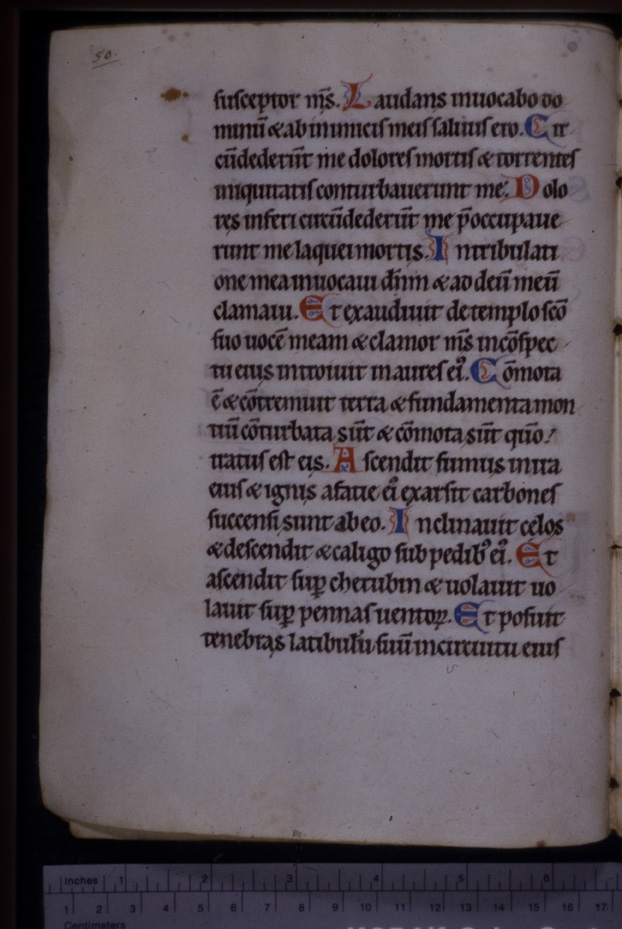 50.
susceptor m̅s. Laudans inuocabo do
minu̅ & ab inimicis meis saluus ero. Cir
cu̅dederu̅t me dolores mortis & torrentes
iniquitatis conturbauerunt me. Dolo
res inferi circu̅dederu̅t me p̅occupaue
runt me laquei mortis. In tribulati
one mea inuocaui dn̅m & ad deu̅ meu̅
clamaui. Et exaudiuit de templo sc̅o
suo uoce̅ meam & clamor m̅s in co̅spec
tu eius introiuit in aures ei᾽. Co̅mota
e̅ & co̅tremuit terra & fundamenta mon
tiu̅ co̅turbata su̅t & co̅mota su̅t q̅uo
iratus est eis. Ascendit fumus in ira
eius & ignis a facie ei᾽ exarsit carbones
succensi sunt ab eo. Inclinauit cęlos
& descendit & caligo sub pedib᾽ ei᾽. Et
ascendit sup̱ cherubin & uolauit uo
lauit sup̱ pennas uentoꝝ. Et posuit
tenebras latibulu̅ suu̅ in circuitu eius
inches 1 2 3 4 5 6
1 2 3 4 5 6 7 8 9 10 11 12 13 14 15 16 17
Centimeters